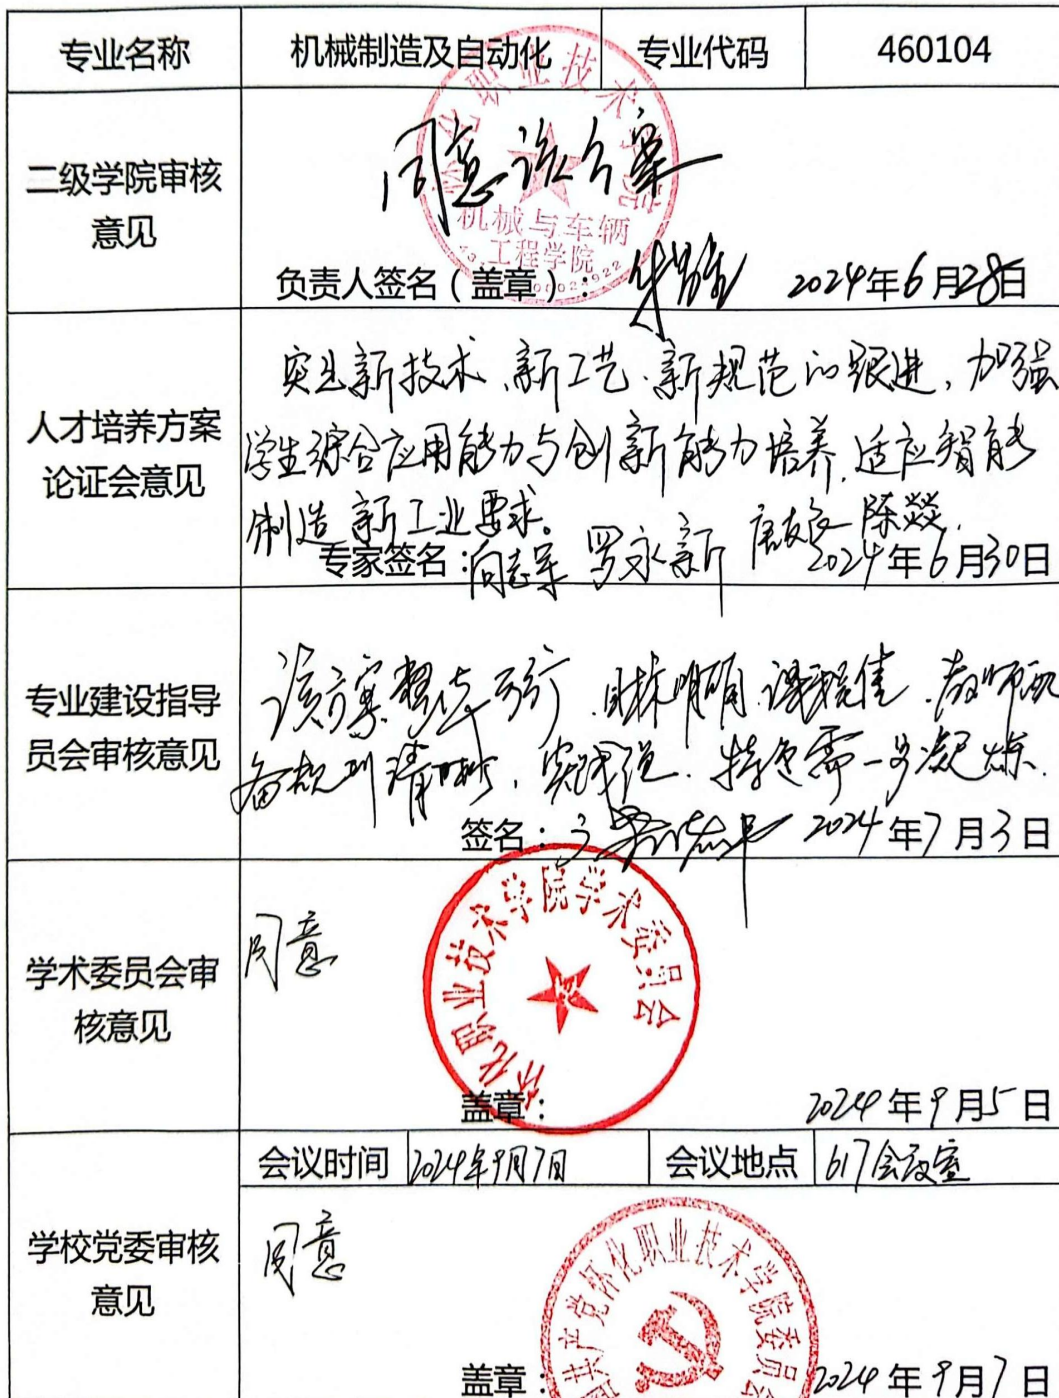 专业名称 机械制造及自动化 专业代码 460104
怀化职业技术学院
二级学院审核
意见
同意该方案
机械与车辆
工程学院
负责人签名（盖章）： 2024年6月28日
人才培养方案
论证会意见
突出新技术、新工艺、新规范的跟进，加强
学生综合应用能力与创新能力培养，适应智能
制造新工业要求。
专家签名：向志军 罗永新 陈燚 2024年6月30日
专业建设指导
员会审核意见
该方案 可行，目标明确，课程佳，教师配
备规划清晰，实践强，特色需一步凝炼.
签名： 2024年7月3日
学术委员会审
核意见
同意
怀化职业技术学院学术委员会
盖章： 2024年9月5日
学校党委审核
意见
会议时间 2024年9月7日 会议地点 617会议室
同意
中国共产党怀化职业技术学院委员会
盖章： 2024年9月7日